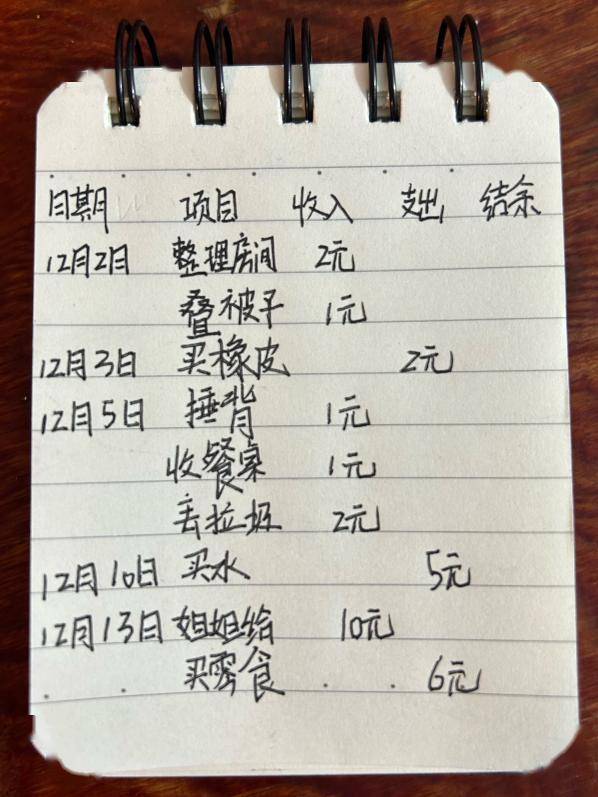 日期 项目 收入 支出 结余
12月2日 整理房间 2元
叠被子 1元
12月3日 买橡皮 2元
12月5日 捶背 1元
收餐桌 1元
丢垃圾 2元
12月10日 买水 5元
12月13日 姐姐给 10元
买零食 6元